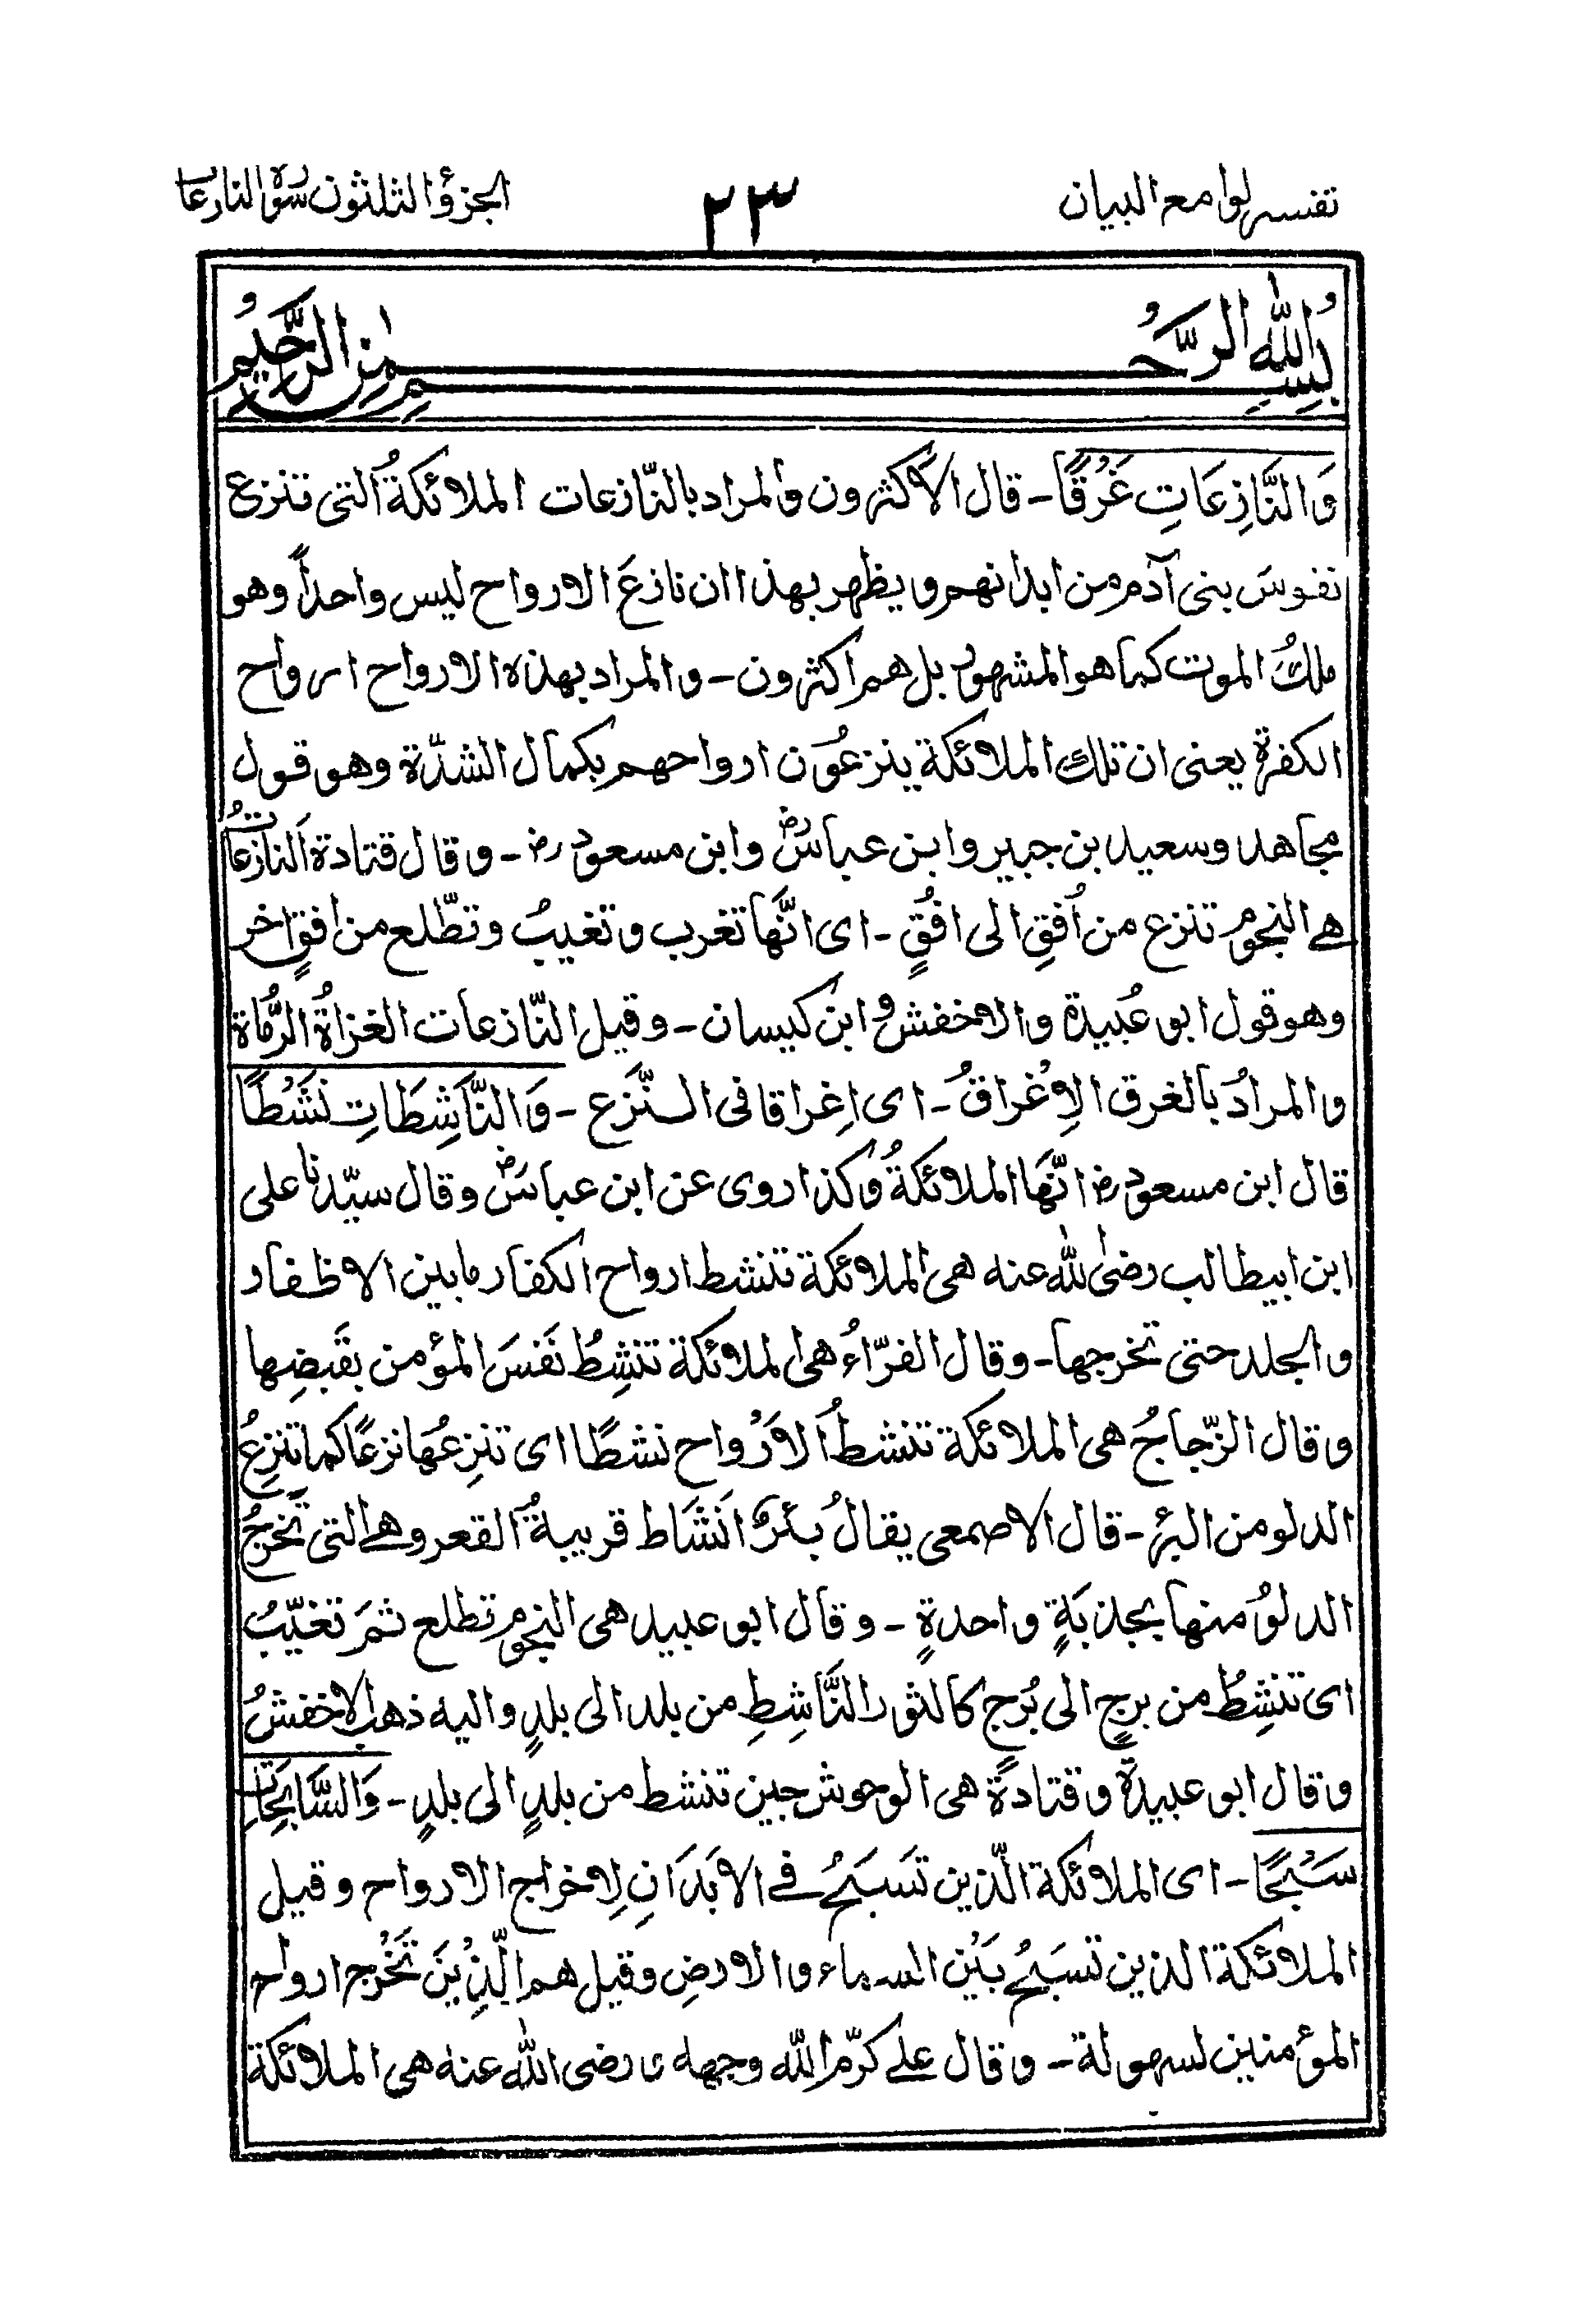 تفسير لوامع البيان ٢٣ الجزؤ الثلثون سورة النازعات
بسم الله الرحمن الرحيم
وَالنَّازِعَاتِ غَرْقًا - قال الأكثرون والمراد بالنّازعات الملائكةُ التى تنزع
نفوسَ بنى آدم من ابدانهم ويظهر بهذا ان نازعَ الارواح ليس واحداً وهو
ملكُ الموت كما هو المشهور بل هم اكثرون - والمراد بهذه الارواح ارواح
الكفرة يعنى ان تلك الملائكة ينزعُون ارواحهم بكمال الشدّة وهو قول
مجاهد وسعيد بن جبير وابن عباسؓ وابن مسعود رض - وقال قتادة اَلنازعاتُ
هے النجوم تنزع من اُفقِ الى افُقٍ - اى انَّها تغرب وتغيبُ وتطّلع من افقٍ اخر
وهو قول ابو عُبيدة والاخفش وابن كيسان - وقيل النّازعات الغزاةُ الرُّماة
والمرادُ بالغرق الاِغراقُ - اى اِغراقا فى النَّزع - وَالنَّاشِطَاتِ نَشْطًا
قال ابن مسعود رض انّها الملائكةُ وكذا روى عن ابن عباسؓ وقال سيّدنا على
ابن ابيطالب رضى الله عنه هى الملائكة تنشط ارواح الكفار ما بين الاظفار
والجلد حتى تخرجها - وقال الفرّاءُ هى الملائكة تنشِطُ نَفسَ المؤمن بقَبضِها
وقال الزّجاجُ هى الملائكة تنشطُ الاَرْواح نشطًا اى تنزِعُها نزعًا كما تنزِعُ
الدلو من البئر - قال الاصمعى يقالُ بئرٌ انَشَاط قريبةُ القعر وهے التى تخرجُ
الدلوُ منها بجذبَةٍ واحدةٍ - وقال ابو عبيد هى النجوم تطلع ثمَ تغيّبُ
اى تنشِطُ من برجٍ الى بُرج كالثور النَّاشِطِ من بلد الى بلدٍ واليه ذهب الاخفشُ
وقال ابو عبيدة وقتادةً هى الوحوش حين تنشط من بلدٍ الى بلدٍ - وَالسَّابِحَاتِ
سَبْحًا - اى الملائكة الّذين تَسبَحُ فے الابَدَانِ لِاخراج الارواح وقيل
الملائكة الذين تسبَحُ بَيْن السماء والارضِ وقيل هم الّذِيْنَ تَخْرج ارواح
المؤمنين لسهولة - وقال علے كرّم الله وجهه ورضى الله عنه هى الملائكة